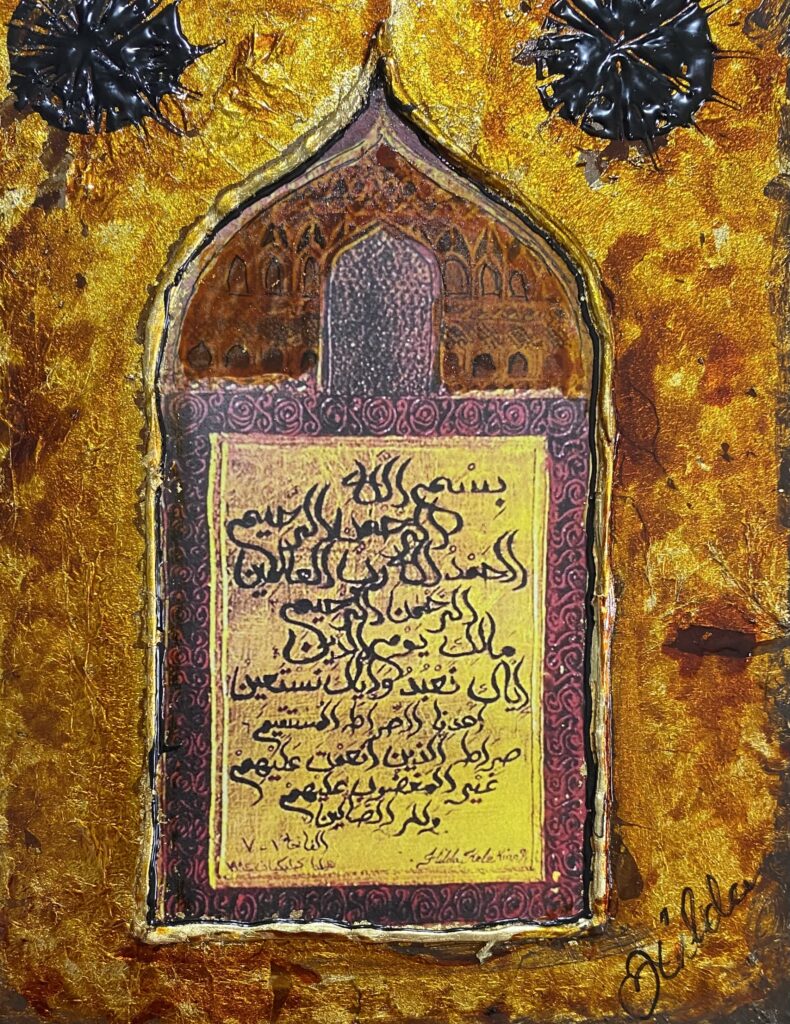 بِسْمِ اللَّه
الرحمن الرحيم
الحَمْدُ للَّه ربِّ العالمين
الرحمن الرحيم
مالك يوم الدين
اياك نَعْبُدُ وَاياك نستعينُ
اهدنا الصِّراط المستقيم
صراط الذين انعمْت عَليْهمْ
غيْر المغضوب عليهمْ
ولا الضالين
الفاتحة ١-٧
Hilda
Hilda